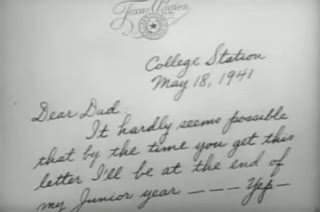 College Station
May 18, 1941
Dear Dad
It hardly seems possible
that by the time you get this
letter I'll be at the end of
my Junior year — — — Yep —